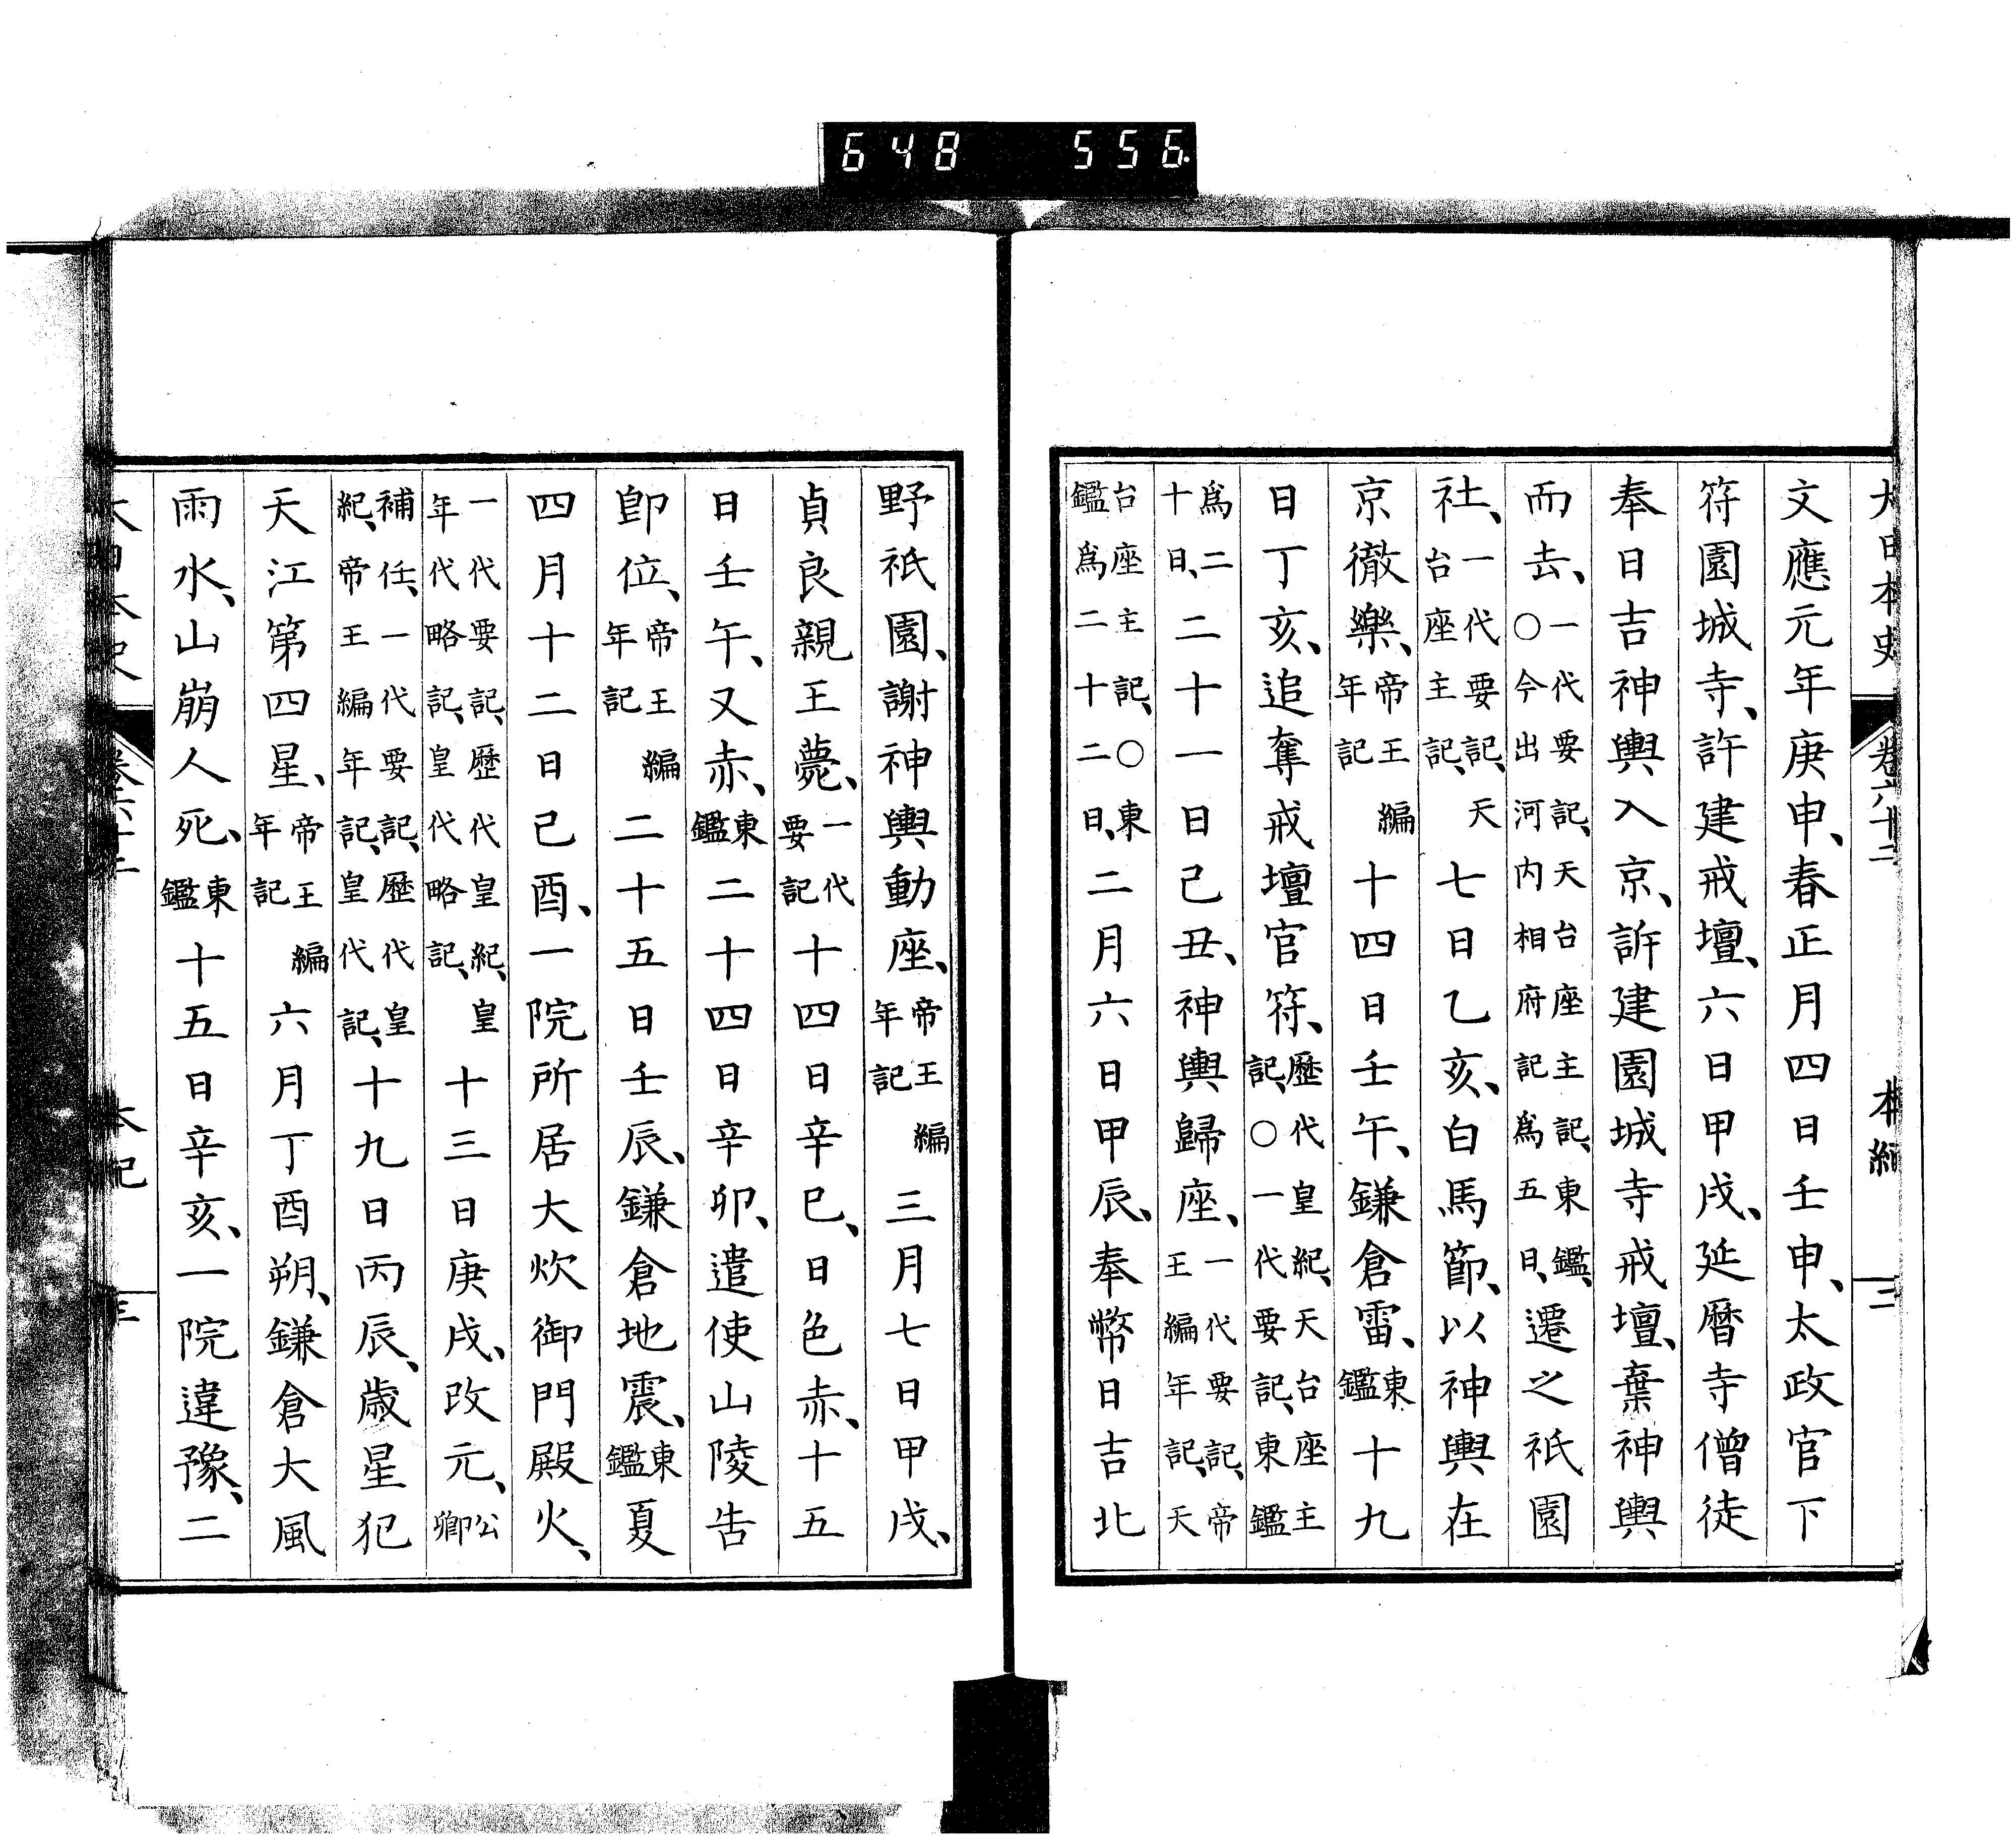 大日本史 卷六十二 本紀 三
文應元年庚申、春正月四日壬申、太政官下
符園城寺、許建戒壇、六日甲戌、延暦寺僧徒
奉日吉神輿入京、訴建園城寺戒壇、棄神輿
而去、一代要記、天台座主記、東鑑、○今出河内相府記爲五日、遷之祇園
社、一代要記、天台座主記、七日乙亥、白馬節、以神輿在
京徹樂、帝王編年記十四日壬午、鎌倉雷、東鑑十九
日丁亥、追奪戒壇官符、歷代皇紀、天台座主記、○一代要記、東鑑
爲二十日、二十一日己丑、神輿歸座、一代要記、帝王編年記、天
台座主記、○東鑑爲二十二日、二月六日甲辰、奉幣日吉北
野祇園、謝神輿動座、帝王編年記三月七日甲戌、
貞良親王薨、一代要記十四日辛巳、日色赤、十五
日壬午、又赤、東鑑二十四日辛卯、遣使山陵告
卽位、帝王編年記二十五日壬辰、鎌倉地震、東鑑夏
四月十二日己酉、一院所居大炊御門殿火、
一代要記、歷代皇紀、皇年代略記、皇代略記、十三日庚戌、改元、公卿
補任、一代要記、歷代皇紀、帝王編年記、皇代記、十九日丙辰、歲星犯
天江第四星、帝王編年記六月丁酉朔、鎌倉大風
雨水、山崩人死、東鑑十五日辛亥、一院違豫、二
大日本史 卷六十二 本紀 三
648 556